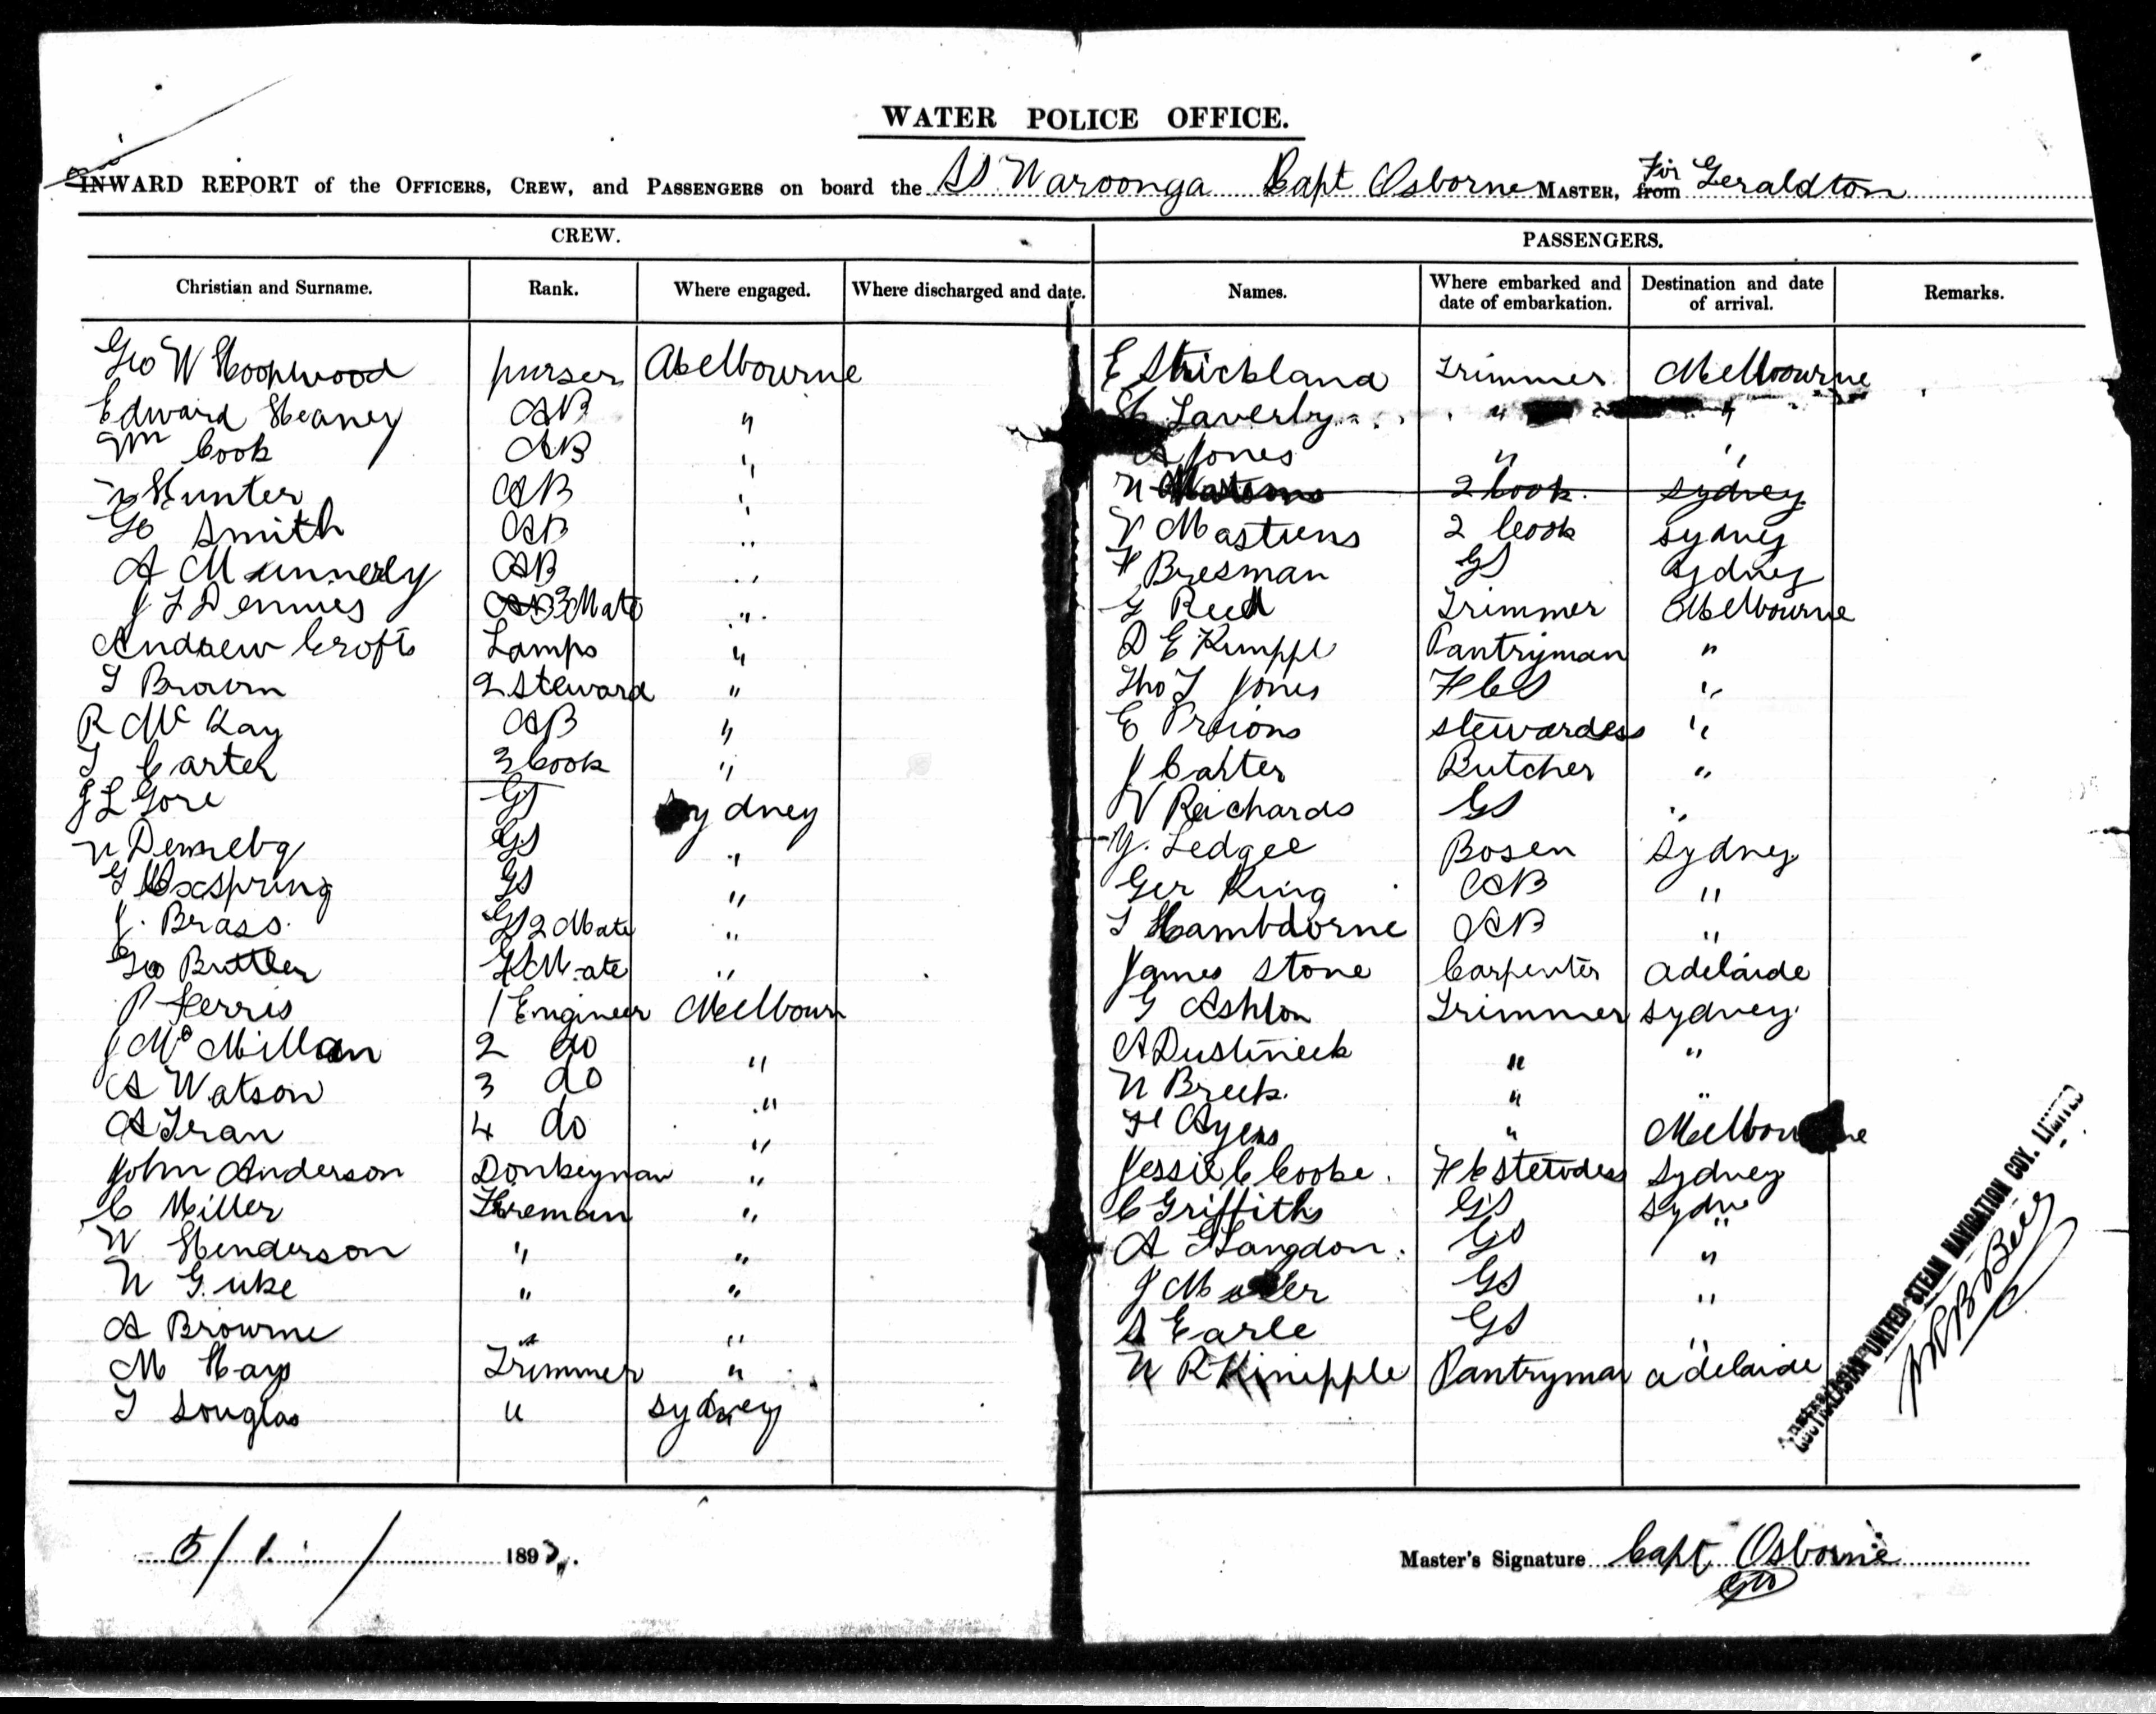 WATER POLICE OFFICE.
INWARD REPORT of the OFFICERS, CREW, and PASSENGERS on board the SS Waroonga Capt Osborne MASTER, from For Geraldton
CREW.
Christian and Surname. Rank. Where engaged. Where discharged and date.
Geo W Hoopwood purser Melbourne
Edward Heaney AB "
Wm Cook AB "
Hunter AB "
Geo Smith AB "
A AB "
J L Dennies AB 3 Mate "
Andrew Croft Lamps "
T Brown 2 Steward "
R McKay AB "
T Carter 3 Cook "
J L Gore GS Sydney
W GS "
G Oxspring GS "
J. Brass. GS 2 Mate "
Geo Buttler Mate "
P Ferris 1 Engineer Melbourn
J McMillan 2 do "
A Watson 3 do "
A Tran 4 do "
John Anderson Donkeyman "
C Miller Fireman "
W Henderson " "
W G. uke " "
A Browne " "
M Hays Trimmer "
T Douglas " Sydney
5/1/ 1892.
PASSENGERS.
Names. Where embarked and date of embarkation. Destination and date of arrival. Remarks.
E Strickland Trimmer Melbourne
Laverby " "
A Jones " "
W 2 Cook. Sydney
V Mastiens 2 Cook Sydney
H Bresman GS Sydney
G Reed Trimmer Melbourne
D E Kumppl Pantryman "
Tho T Jones F C S "
E Prcions stewardess "
J Carter Butcher "
W Reichards GS "
Y. Ledgee Bosen Sydney
Ger King AB "
T Hambdorne AB "
James Stone Carpenter adelaide
G Ashton Trimmer Sydney
A Dustneick " "
W Breek. " "
H Ayers " Melbourne
Jessie C Cooke. F C Stewdess Sydney
C Griffiths GS Sydne
A Langdon. GS "
J GS "
S Earle GS "
W R Kinipple Pantryman adelaide
AUSTRALASIAN UNITED STEAM NAVIGATION COY. LIMITED
Master's Signature Capt Osborne